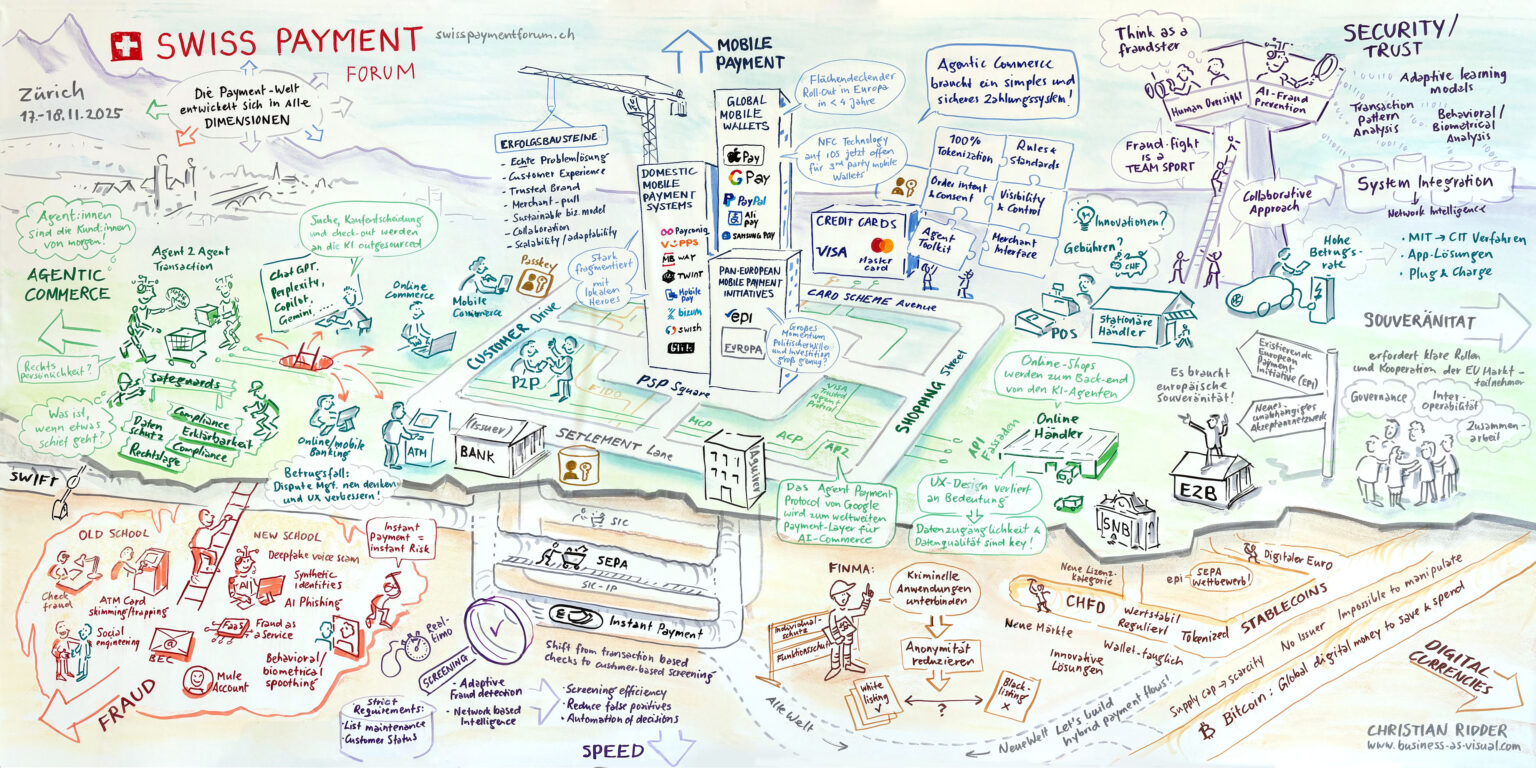 SWISS PAYMENT
FORUM
swisspaymentforum.ch
Zürich
17.-18.11.2025
Die Payment-Welt
entwickelt sich in Alle
DIMENSIONEN
MOBILE
PAYMENT
ERFOLGSBAUSTEINE:
- Echte Problemlösung
- Customer Experience
- Trusted Brand
- Merchant-pull
- Sustainable biz. model
- Collaboration
- Scalability/adaptability
DOMESTIC
MOBILE
PAYMENT
SYSTEMS
Payconiq
VIPPS
MB WAY
TWINT
Mobile
Pay
bizum
swish
BLIK
GLOBAL
MOBILE
WALLETS
Pay
G Pay
PayPal
Ali
pay
SAMSUNG PAY
PAN-EUROPEAN
MOBILE PAYMENT
INITIATIVES
epi
EUROPA
Flächendeckender
Roll-Out in Europa
in < 4 Jahre
NFC Technology
auf iOS jetzt offen
für 3rd party mobile
Wallets
Stark
fragmentiert
mit
lokalen
Heroes
Großes
Momentum
Politischer Wille
und Investition
groß genug?
Agentic Commerce
braucht ein simples und
sicheres Zahlungssystem!
100%
Tokenization
Rules &
Standards
Order intent
& consent
Visibility
& Control
Agent
Toolkit
Merchant
Interface
CREDIT CARDS
VISA
Master
card
CARD SCHEME Avenue
Think as a
fraudster
Human Oversight
AI-Fraud
Prevention
Fraud-fight
is a
TEAM SPORT
SECURITY/
TRUST
Adaptive learning
models
Transaction
Pattern
Analysis
Behavioral/
Biometrical
Analysis
System Integration
Network Intelligence
Collaborative
Approach
Innovationen?
Gebühren?
CHF
Hohe
Betrugs-
rate
• MIT → CIT Verfahren
• App-Lösungen
• Plug & Charge
POS
Stationäre
Händler
Agent:innen
sind die Kund:innen
von morgen!
AGENTIC
COMMERCE
Agent 2 Agent
Transaction
Suche, Kaufentscheidung
und check-out werden
an die KI outgesourced
Chat GPT,
Perplexity,
Copilot,
Gemini,...
Online
Commerce
Mobile
Commerce
Passkey
CUSTOMER Drive
P2P
EIDD
PSP Square
VISA
Trusted
Agent
Protocol
MCP
ACP
AP2
SETTLEMENT Lane
SHOPPING Street
Rechts
persönlichkeit?
Safeguards
Was ist,
wenn etwas
schief geht?
Daten
schutz
Compliance
Erklärbarkeit
Rechtslage
Compliance
Online/mobile
Banking
ATM
(Issuer)
BANK
Aquirer
Betrugsfall:
Dispute Mgt. neu denken
und UX verbessern!
Das Agent Payment
Protocol von Google
wird zum weltweiten
Payment-Layer für
AI-Commerce
API
Fassaden
Online-Shops
werden zum Back-end
von den KI-Agenten
Online
Händler
UX-Design verliert
an Bedeutung
Datenzugänglichkeit &
Datenqualität sind key!
SOUVERÄNITÄT
erfordert klare Rollen
und Kooperation der EU Markt-
teilnehmer
Es braucht
europäische
Souveränität!
Existierende
European
Payment
Initiative (EPI)
Neues
unabhängiges
Akzeptanznetzwerk
Governance
Inter-
operabilität
Zusammen-
arbeit
EZB
SNB
SWIFT
SIC
SEPA
SIC-IP
Instant Payment
OLD SCHOOL
Check
fraud
ATM Card
skimming/trapping
Social
engineering
BEC
Mule
Account
NEW SCHOOL
Deepfake voice scam
AI
Synthetic
identities
AI Phishing
FaaS
Fraud as
a Service
Behavioral/
biometrical
spoothing
Instant
Payment =
instant Risk
FRAUD
Real-
time
SCREENING
Strict
Requirements:
- List maintenance
- Customer Status
• Adaptive
Fraud detection
• Network based
Intelligence
Shift from transaction based
checks to customer-based screening
• Screening efficiency
• Reduce false positives
• Automation of decisions
SPEED
FINMA:
Individual-
schutz
Funktionsschutz
Kriminelle
Anwendungen
unterbinden
Anonymität
reduzieren
White
listing
?
Black-
listing
x
Alte Welt
Neue Welt
Let's build
hybrid payment flows!
Neue Lizenz-
kategorie
CHFD
Neue Märkte
Wertstabil
Reguliert
Wallet-tauglich
Innovative
Lösungen
Tokenized
Digitaler Euro
epi
SEPA
Wettbewerb!
STABLECOINS
Supply cap → scarcity No Issuer Impossible to manipulate
Bitcoin: Global digital money to save & spend
DIGITAL
CURRENCIES
CHRISTIAN RIDDER
www.business-as-visual.com